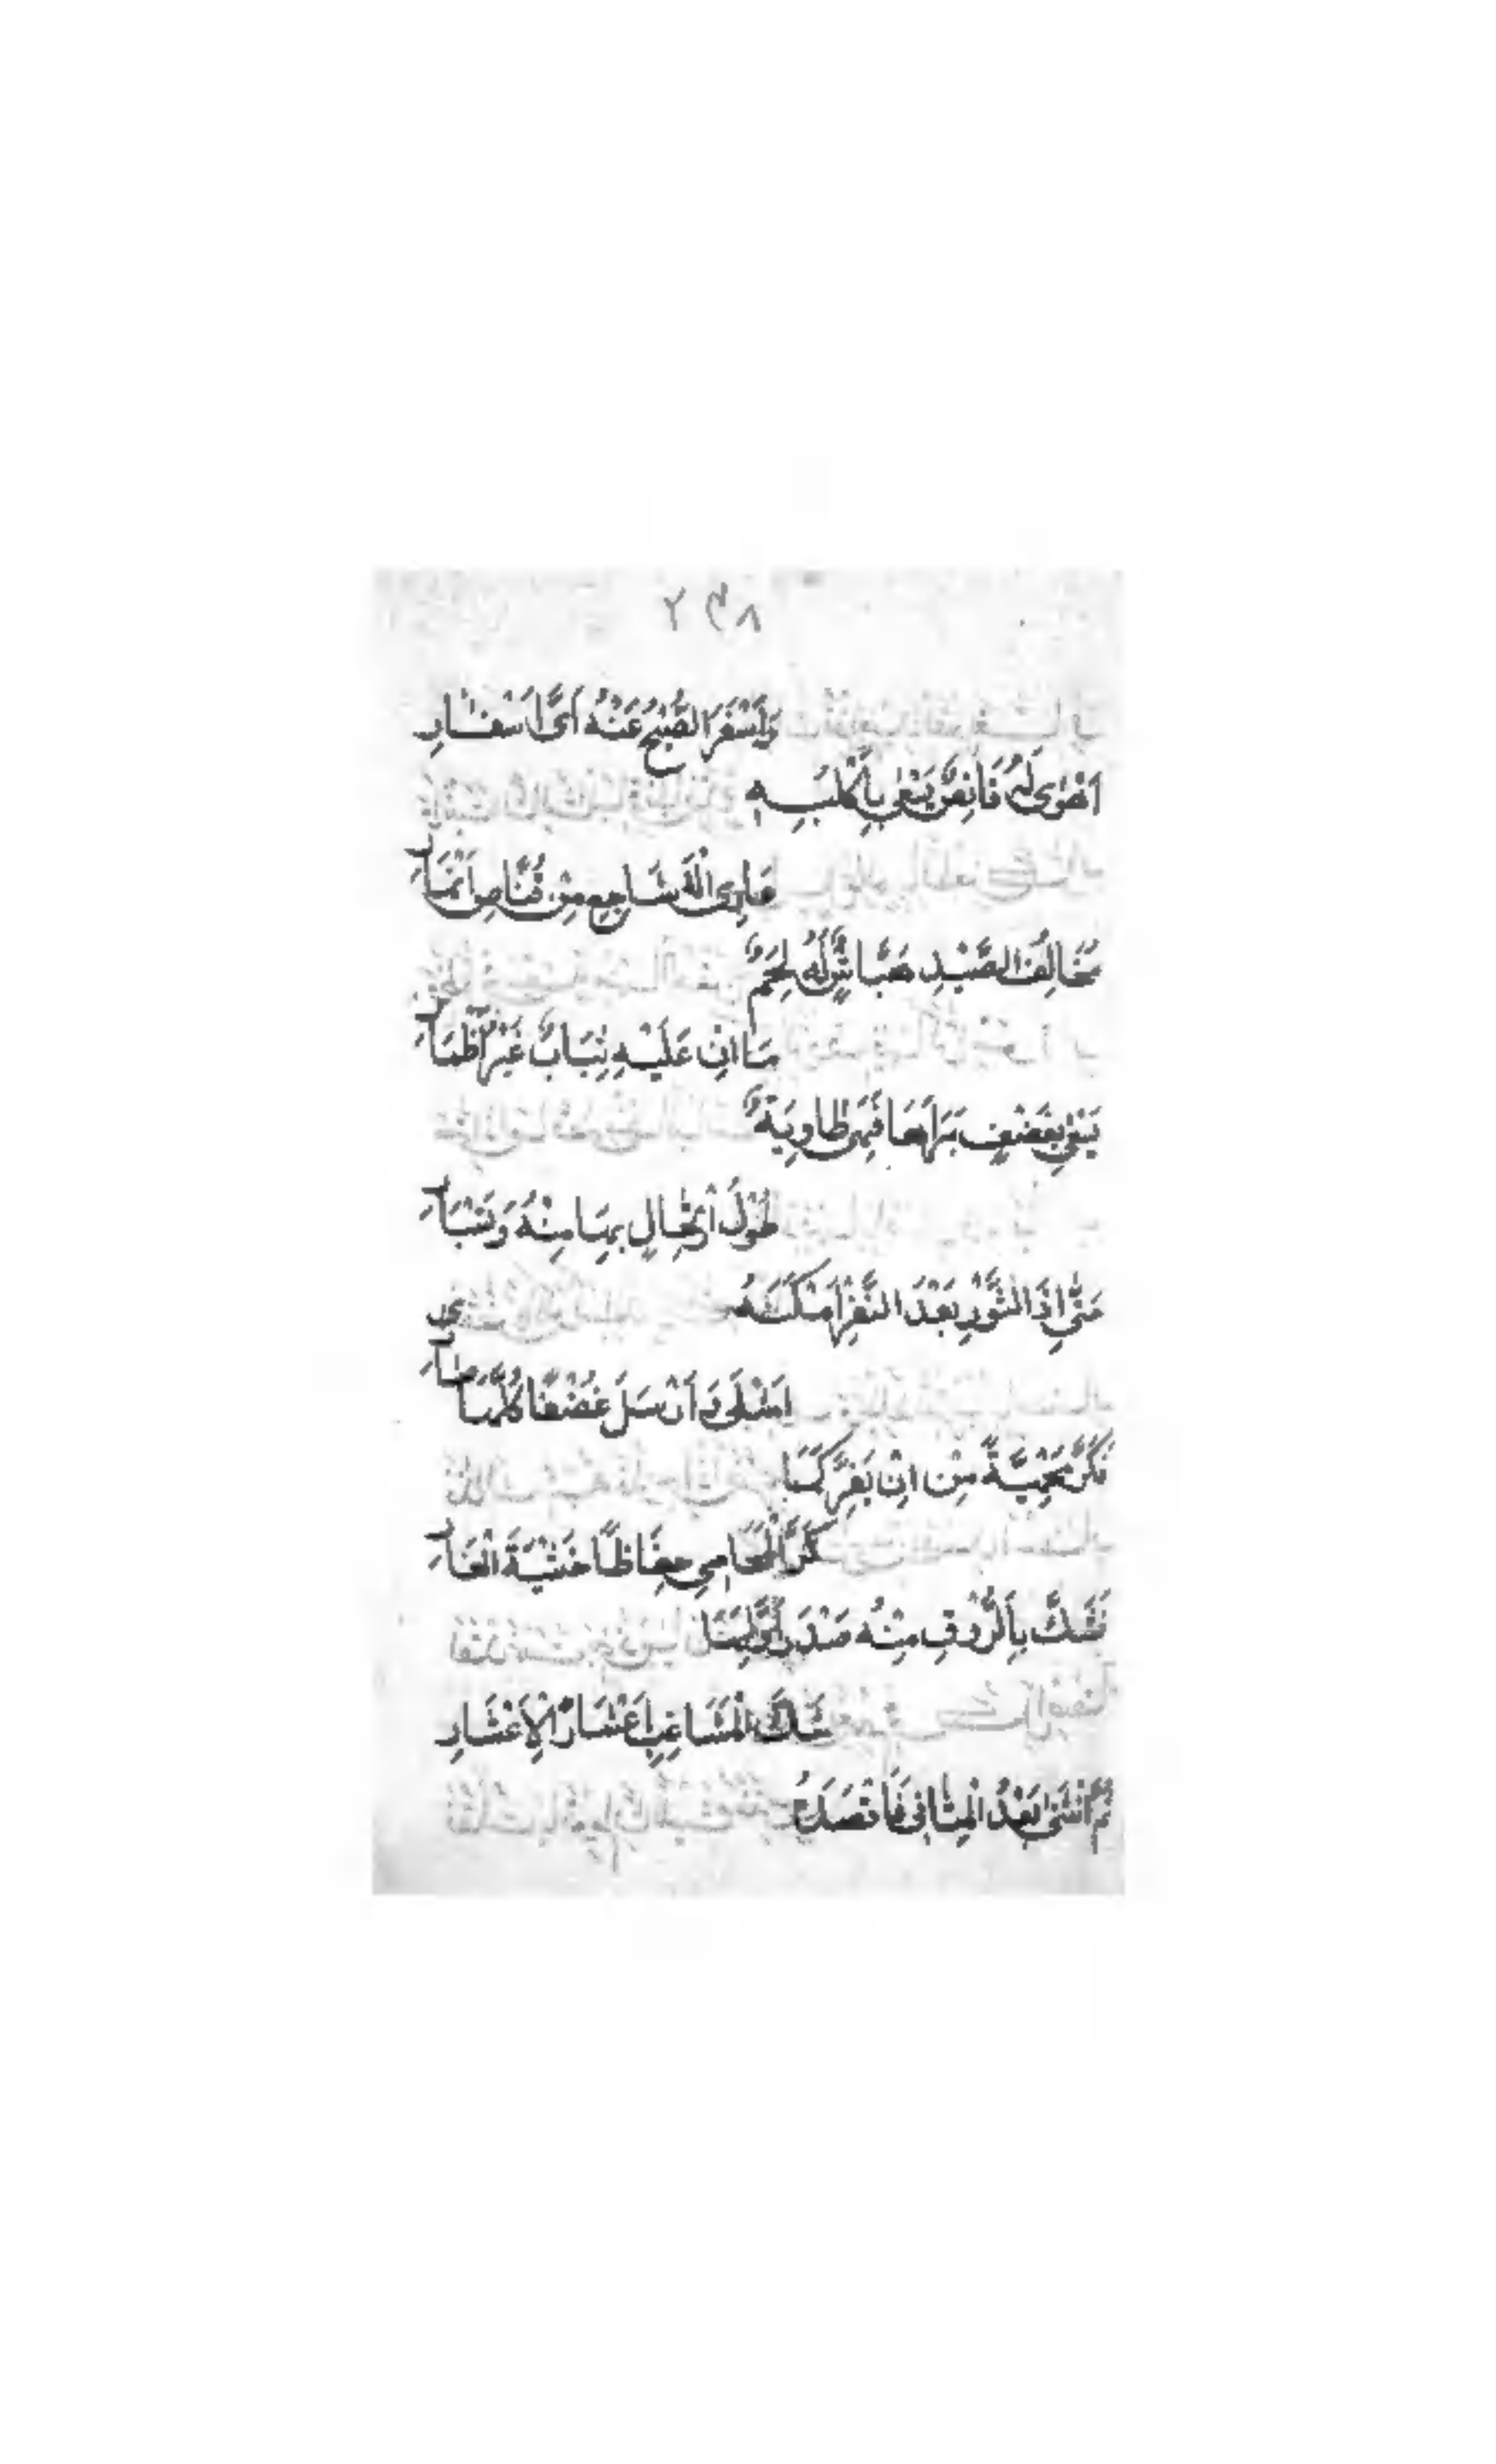 ٢٣٨
وَاَسْفَرَ الصُّبْحُ عَنْهُ اَیَّ اِسْفَارِ
اَهْوٰی لَهُ قَانِصٌ یَسْعٰی بِاَكْلُبِهٖ
عَارِی الْاَشَاجِعِ مِنْ قُنَّاصِ اَنْمَارِ
مُحَالِفُ الصَّیْدِ هَبَّاشٌ لَهُ لَحِمٌ
مَا اِنْ عَلَیْهِ ثِیَابٌ غَیْرُ اَطْمَارِ
یَسْعٰی بِغُضْفٍ بَرَاهَا فَهِیَ طَاوِیَةٌ
طُوْلُ ارْتِحَالٍ بِهَا مِنْهُ وَتَسْیَارِ
حَتّٰی اِذَا الثَّوْرُ بَعْدَ النَّفْرِ اَمْكَنَهُ
اَشْلٰی وَاَرْسَلَ غُضْفًا كُلَّهَا ضَارِی
فَكَرَّ مَحْمِیَّةً مِنْ اَنْ یَفِرَّ كَمَا
كَرَّ الْمُحَامِی حِفَاظًا خَشْیَةَ الْعَارِ
فَشَكَّ بِالرَّوْقِ مِنْهُ صَدْرَ اَوَّلِهَا
شَكَّ الْمُشَاعِبِ اَعْشَارًا بِاَعْشَارِ
ثُمَّ انْثَنٰی بَعْدُ لِلثَّانِی فَاَقْصَدَهُ